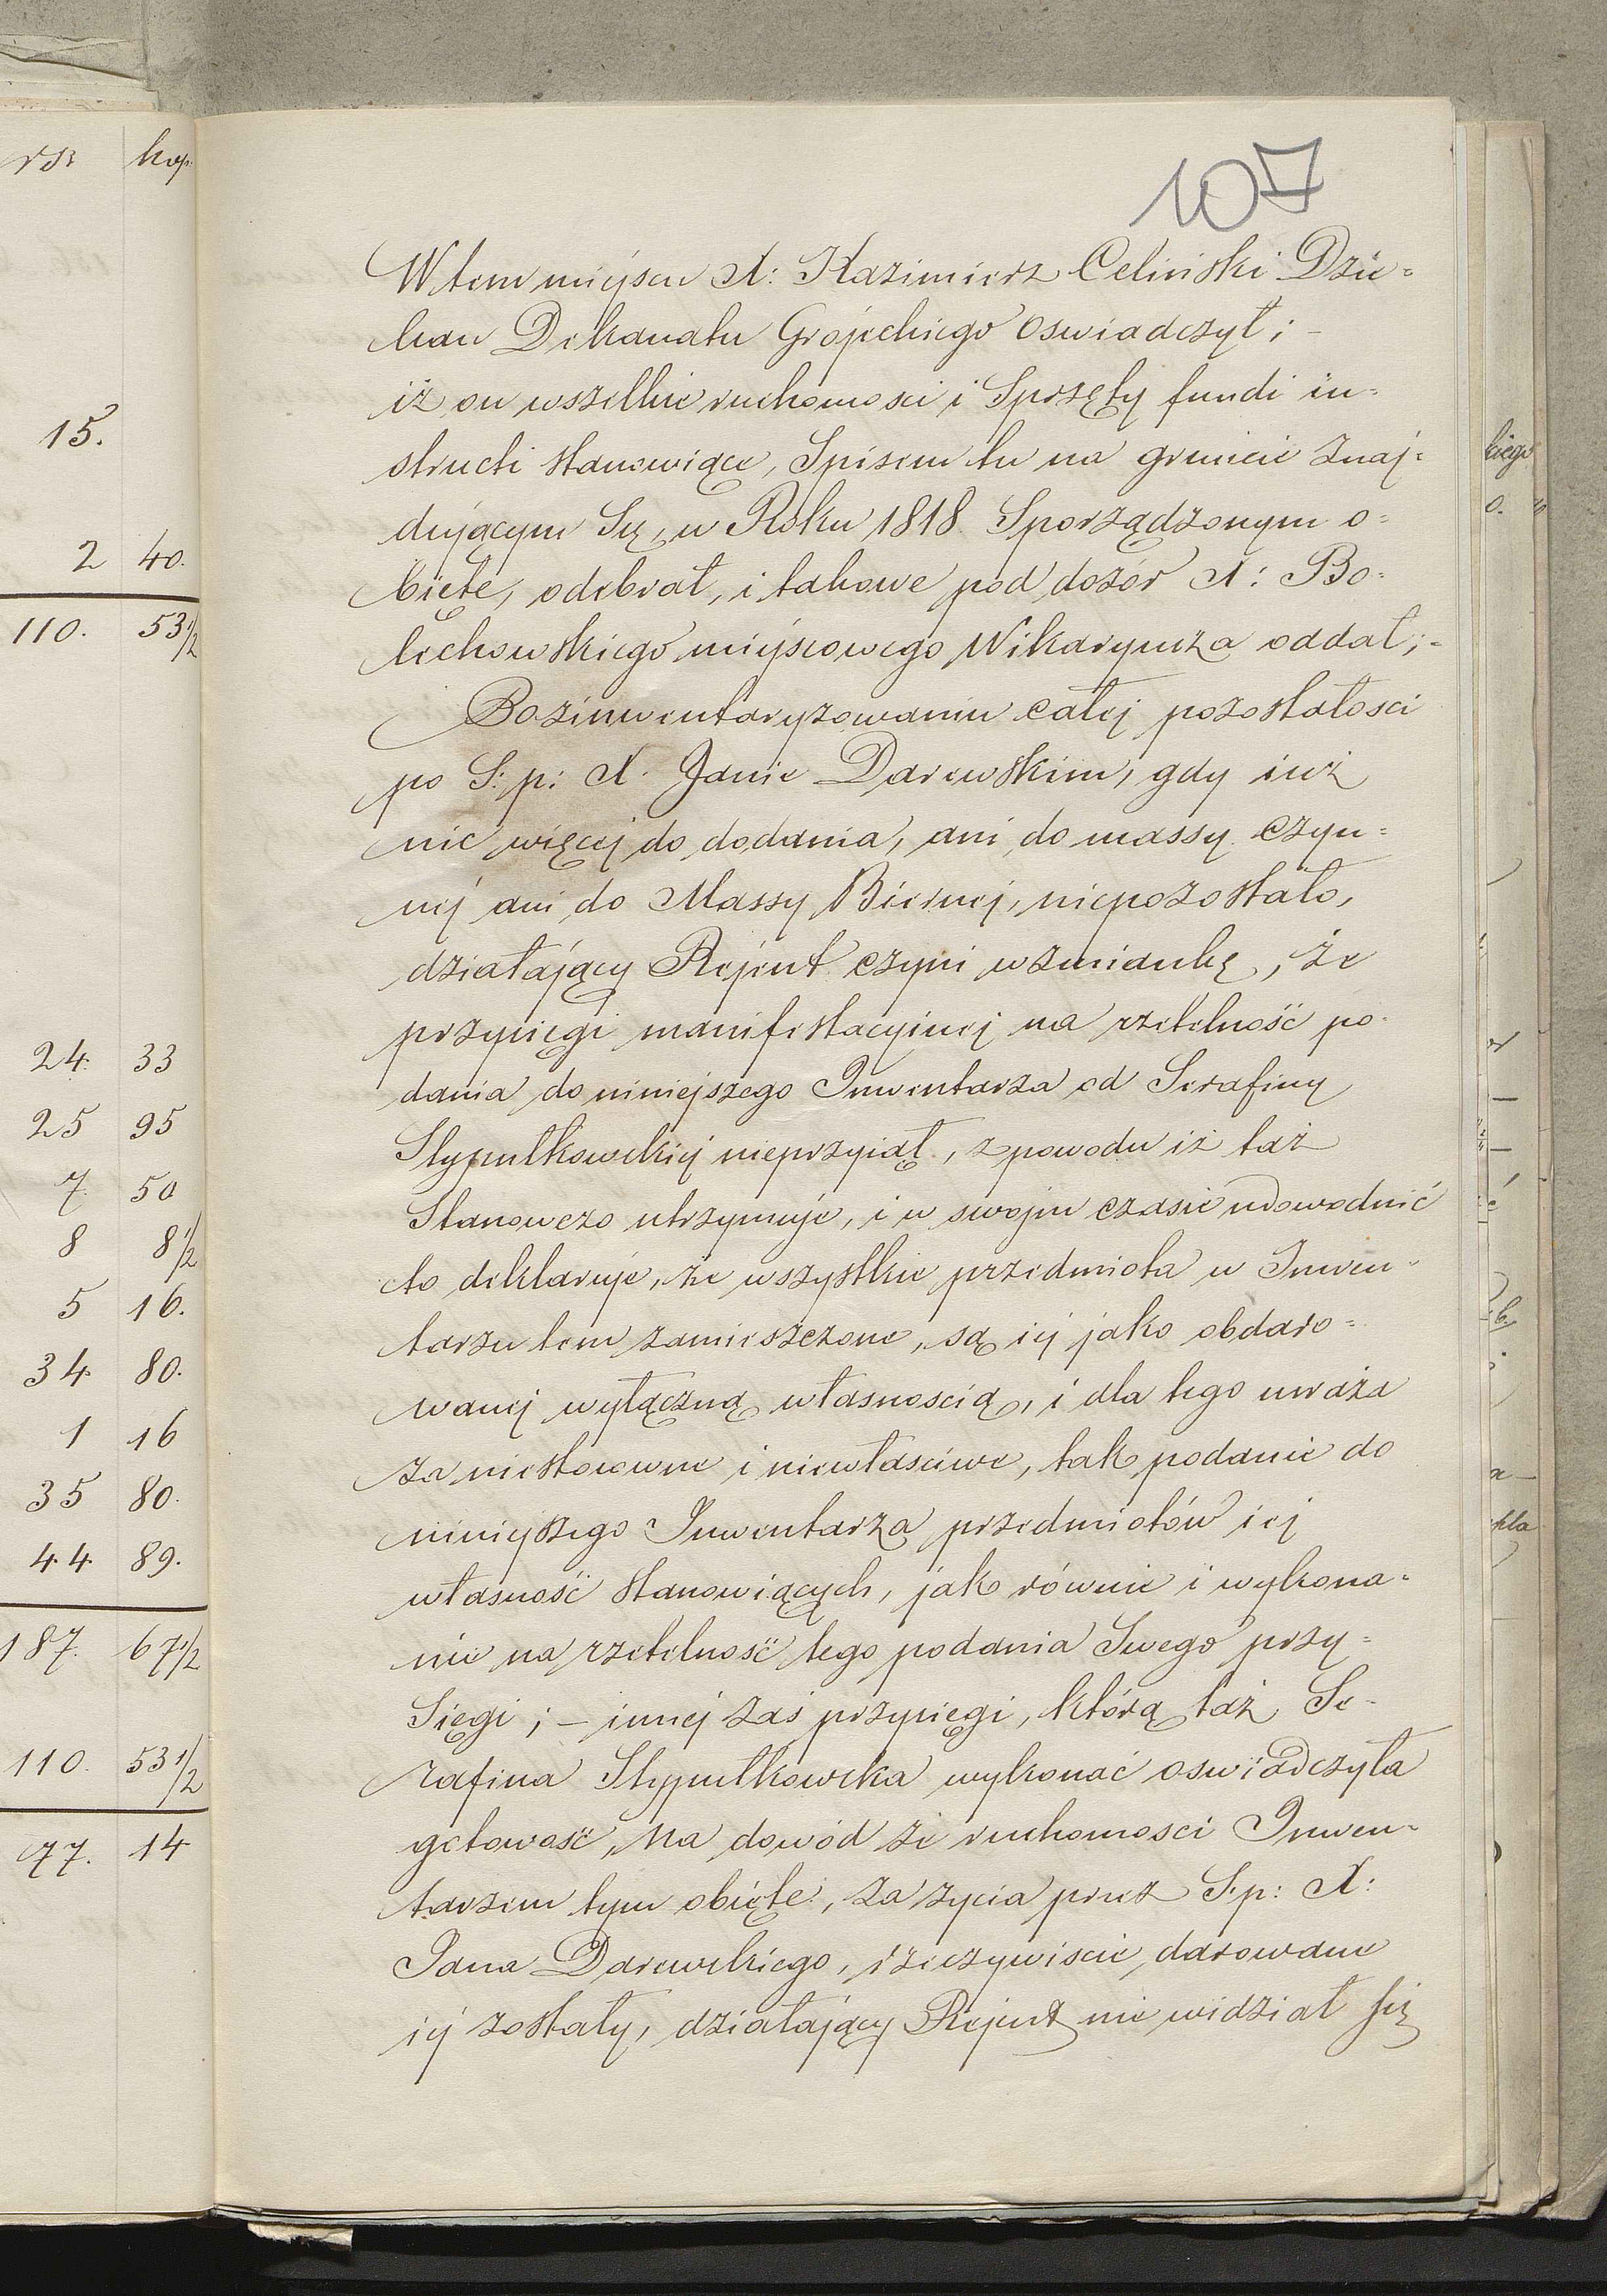 rsr kop.
15.
2 40.
110. 53 1/2
24. 33
25 95
7. 50
8 8 1/2
5 16.
34 80.
1 16
35 80.
44. 89.
187. 67 1/2
110. 53 1/2
77. 14
107
W tem miejscu X: Kazimierz Celiński Dzie=
kan Dekanatu Grojeckiego Oswiadczył; –
iż on wszelkie ruchomosci i Sprzęty fundi in=
structi stanowiące, Spisem tu na gruncie znaj=
dującym Się, w Roku 1818 Sporządzonym o=
bięte, odebrał, i takowe pod dozór X: Bo=
lechowskiego miejscowego Wikaryusza oddał; =
Pozinwentaryzowaniu całej pozostałosci
po S: p: X. Janie Darewskim, gdy iuż
nic więcej do dodania, ani do massy czyn=
nej ani do Massy Biernej, niepozostało,
działający Rejent czyni wzmiankę, że
przysięgi manifestacyjnej na rzetelność po=
dania do niniejszego Inwentarza od Serafiny
Stypułkowskiej nieprzyiął, z powodu iż taż
Stanowczo utrzymuje, i w swojm czasie udowodnić
to deklaruje, że wszystkie przedmiota w Inwen=
tarzu tem zamieszczone, są iej jako obdaro=
wanej wyłączną własnoscią, i dla tego uważa
za niestosowne i niewłasciwe, tak podanie do
niniejszego Inwentarza przedmiotów iej
własność stanowiących, jako równie i wykona=
nie na rzetelność tego podania Swego przy=
Sięgi; – innej zaś przysięgi, którą taż Se=
rafina Stypułkowska wykonać oswiadczyła
gotowość, na dowód że ruchomosci Inwen=
tarzem tym obięte, za zycia przez S.p: X:
Jana Darewskiego, rzeczywiscie darowane
iej zostały, działający Rejent nie widział się
kiego
0.